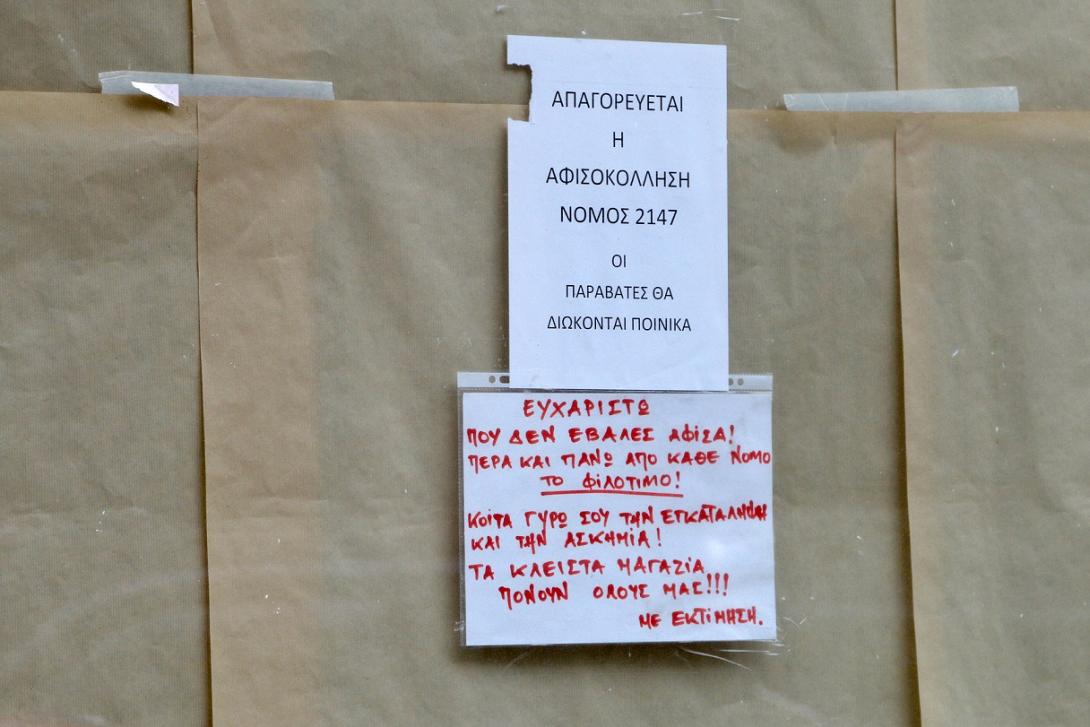 ΑΠΑΓΟΡΕΥΕΤΑΙ
Η
ΑΦΙΣΟΚΟΛΛΗΣΗ
ΝΟΜΟΣ 2147
ΟΙ
ΠΑΡΑΒΑΤΕΣ ΘΑ
ΔΙΩΚΟΝΤΑΙ ΠΟΙΝΙΚΑ
ΕΥΧΑΡΙΣΤΩ
ΠΟΥ ΔΕΝ ΕΒΑΛΕΣ ΑΦΙΣΑ!
ΠΕΡΑ ΚΑΙ ΠΑΝΩ ΑΠΟ ΚΑΘΕ ΝΟΜΟ
ΤΟ ΦΙΛΟΤΙΜΟ!
ΚΟΙΤΑ ΓΥΡΩ ΣΟΥ ΤΗΝ ΕΓΚΑΤΑΛΗΨΗ
ΚΑΙ ΤΗΝ ΑΣΚΗΜΙΑ!
ΤΑ ΚΛΕΙΣΤΑ ΜΑΓΑΖΙΑ
ΠΟΝΟΥΝ ΟΛΟΥΣ ΜΑΣ!!!
ΜΕ ΕΚΤΙΜΗΣΗ.